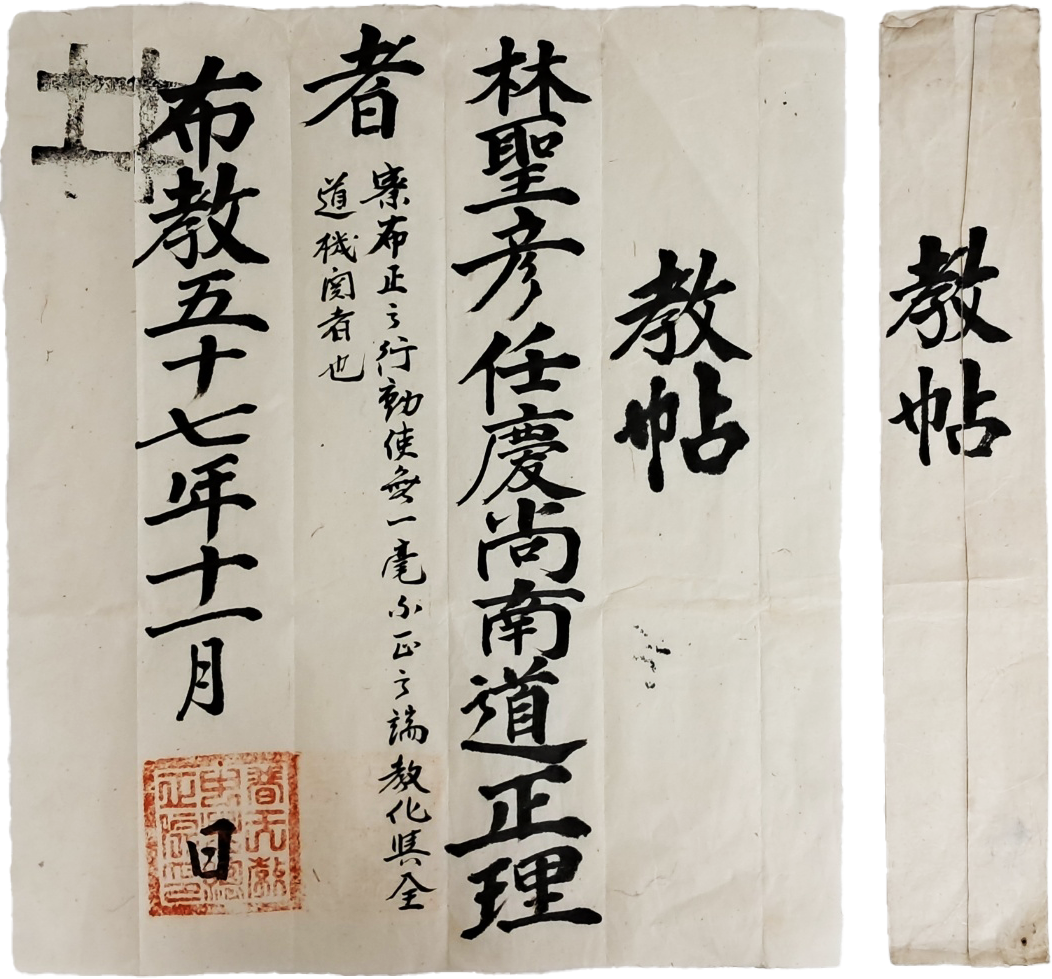 教帖
林聖彦任慶尚南道正理
者
察布正之行動使無一毫不正之端教化全
道機関者也
布教五十七年十一月
日
普天教
教帖